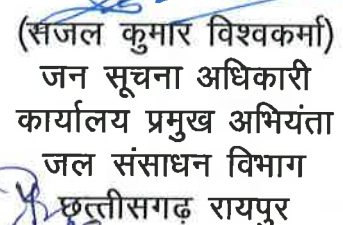 (सजल कुमार विश्वकर्मा)
जन सूचना अधिकारी
कार्यालय प्रमुख अभियंता
जल संसाधन विभाग
छत्तीसगढ़ रायपुर